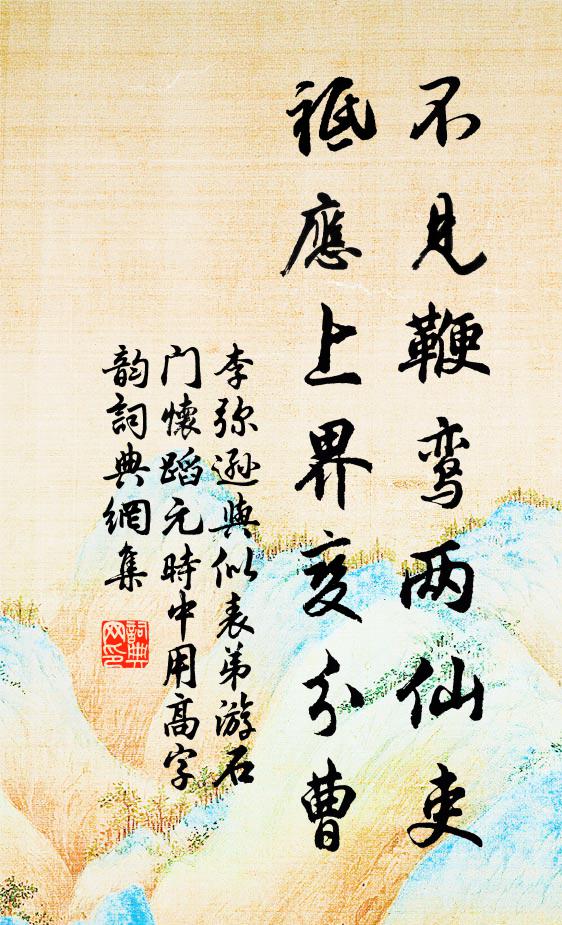 不见鞭鸾两仙吏
祗應上界变分曹
李弥遜與似表弟游石
门懷蹈元時中用高字
韵詞典網集
詞典
网印